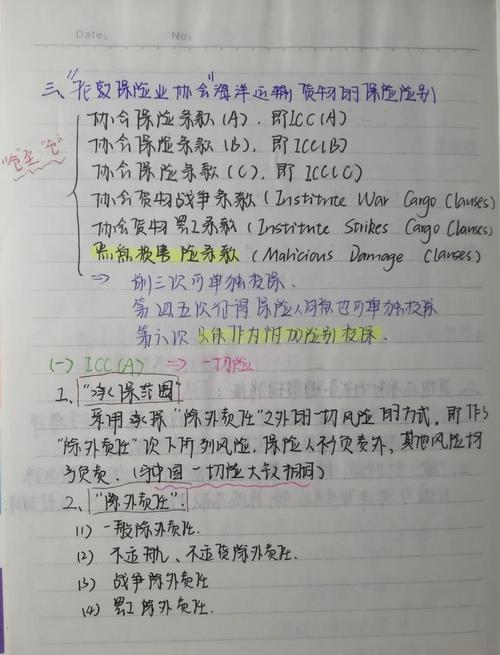 Date: No:
三、"伦敦保险业协会"海洋运输货物的保险险别
"仓至仓"
协会保险条款(A),即ICC(A)
协会保险条款(B),即ICC(B)
协会保险条款(C),即ICC(C)
协会货物战争条款(Institute War Cargo Clauses)
协会货物罢工条款(Institute Strikes Cargo Clauses)
恶意损害险条款(Malicious Damage Clauses)
⇒ 前三次可单独投保.
第四五次征得保险人同意也可单独投保
第六次只能作为附加险别投保.
(一) ICC(A) ⇒ 一切险
1、"承保范围"
采用承保"除外责任"之外的一切风险的方式,即作为
"除外责任"次下所列风险,保险人不负责外,其他风险均
予负责.(与中国一切险大致相同)
2、"除外责任":
(1) 一般除外责任.
(2) 不适航、不适货除外责任.
(3) 战争除外责任
(4) 罢工除外责任.